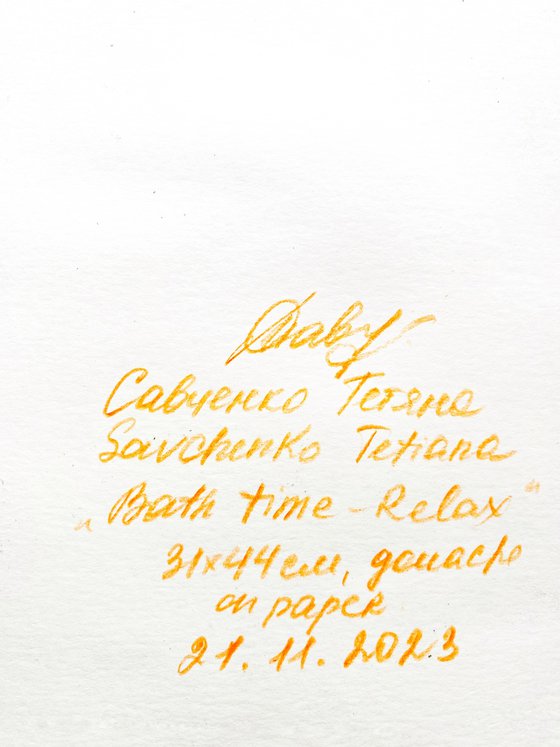 Савченко Тетяна
Savchenko Tetiana
„Bath time - Relax"
31x44см, gouache
on paper
21. 11. 2023